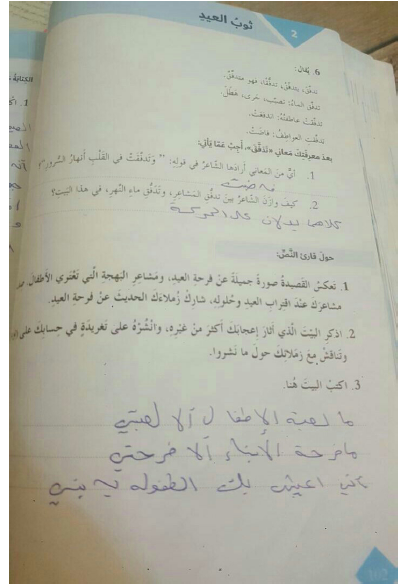 ثوبُ العيدِ
2
6. يُقالُ:
تدفَّقَ، يتدفَّقُ، تدفُّقًا، فهو مُتدفِّقٌ.
تدفَّقَ الماءُ: تصبَّبَ، جَرى، هَطَلَ.
تدفَّقتْ عاطفتُهُ: اندفعَتْ.
تدفَّقتِ العواطفُ: فاضَتْ.
بعدَ معرفتِكَ معاني «تَدَفَّقَ»، أجِبْ عمّا يأتي:
1. أيٌّ من المعاني أرادَها الشّاعرُ في قولِهِ: "وَتَدفَّقَتْ في القَلْبِ أنهارُ السُّرورِ"؟
فاضت
2. كيفَ وازَنَ الشّاعرُ بينَ تدفُّقِ المَشاعرِ، وتَدَفُّقِ ماءِ النَّهرِ، في هذا البَيتِ؟
كلاهما يدلان على الحركة
حولَ قارئِ النَّصِّ:
1. تَعكسُ القَصيدةُ صورةً جميلةً عنْ فرحةِ العيدِ، ومَشاعرِ البَهجةِ الّتي تَعْتري الأطفالَ.
مشاعركَ عنْدَ اقتِرابِ العيدِ وحُلولِهِ، شارِكْ زُملاءَكَ الحديثَ عنْ فرحةِ العيدِ.
2. اذكرِ البَيْتَ الّذي أثارَ إعجابَكَ أكثرَ منْ غيرِهِ، وانْشُرْهُ على تَغريدةٍ في حسابِكَ على
وتَناقَشْ معَ زملائِكَ حولَ ما نَشروا.
3. اكتبُ البيتَ هُنا.
ما لعبة الاطفال ألا لعبتي
ما فرحة الأبناء ألا فرحتي
اعيش بك الطفولة يا بني
162